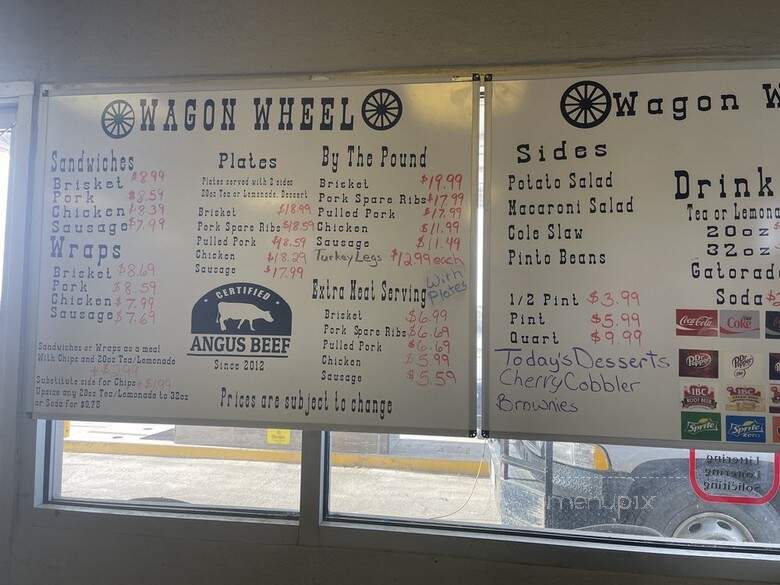 WAGON WHEEL
Sandwiches
Brisket $8.99
Pork $8.59
Chicken $8.39
Sausage $7.99
Wraps
Brisket $8.69
Pork $8.59
Chicken $7.99
Sausage $7.69
Sandwiches or Wraps as a meal
With Chips and 20oz Tea/Lemonade
+ $2.99
Substitute side for Chips + $1.99
Upsize any 20oz Tea/Lemonade to 32oz
or Soda for $0.75
Plates
Plates served with 2 sides
20oz Tea or Lemonade, Dessert
Brisket $18.99
Pork Spare Ribs $18.59
Pulled Pork $18.59
Chicken $18.29
Sausage $17.99
CERTIFIED
ANGUS BEEF
Since 2012
By The Pound
Brisket $19.99
Pork Spare Ribs $17.99
Pulled Pork $17.99
Chicken $11.99
Sausage $11.49
Turkey Legs $12.99 each
With
Plates
Extra Meat Serving
Brisket $6.99
Pork Spare Ribs $6.69
Pulled Pork $6.69
Chicken $5.99
Sausage $5.59
Prices are subject to change
Wagon W
Sides
Potato Salad
Macaroni Salad
Cole Slaw
Pinto Beans
1/2 Pint $3.99
Pint $5.99
Quart $9.99
Today's Desserts
Cherry Cobbler
Brownies
Drink
Tea or Lemona
20oz
32oz
Gatorad
Soda $2
Coca-Cola Coke
Dr Pepper Dr Pepper
IBC
ROOT BEER
Sprite Sprite
zero
Littering
Loitering
Soliciting
menupix